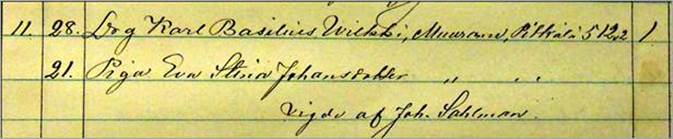 11. 28. Drg Karl Basilius Wilkki, Muurame, Pitkälä 5 122 1
21. Piga Eva Stina Johansdotter " "
Vigde af Joh. Sahlman.